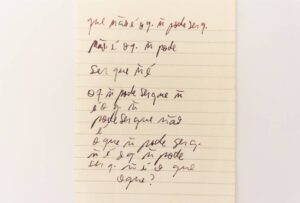 que não é o q. ñ pode ser q.
não é o q. ñ pode
ser que ñ é
o q ñ pode ser que ñ
é o q ñ
pode ser que não
é
o que ñ pode ser q.
ñ é o q ñ pode
ser q. ñ é o que
o que?